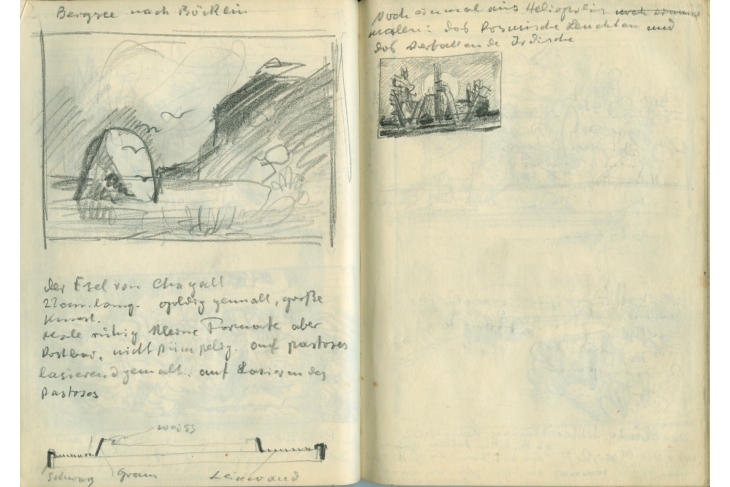 Bergsee nach Böcklin
der Esel von Chagall
22 cm lang. gemalt, große
Kunst.
Male ruhig kleine Formate aber
kostbar, nicht pümpelig. auf pastoses
lasierend gemalt. auf Lasierendes
Pastoses
weiss
schwarz Grau Leinwand
Noch einmal aus Heliopolis noch einmal
malen: das Kosmische Leuchten und
das Verfallende Irdische